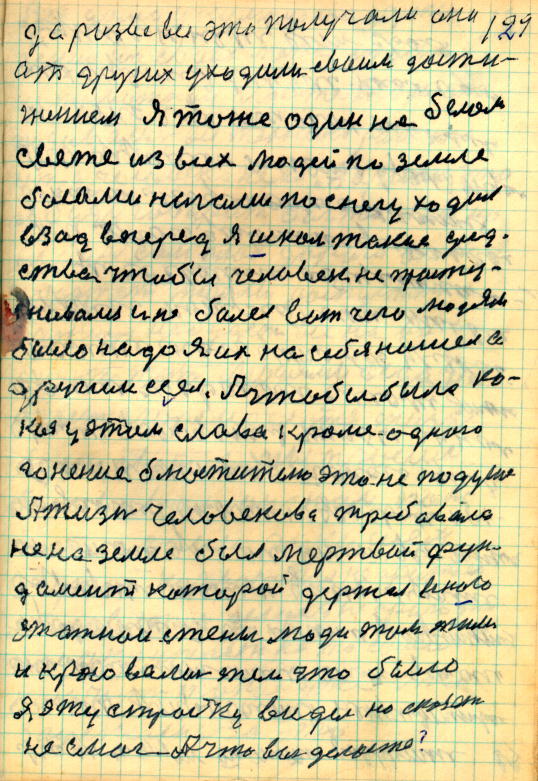 да розве все это получали они 129
от других уходили своим дости-
жением Я тоже один на белом
свете из всех людей по земле
босами ногами по снегу ходил
взад вперед Я искал такие сред-
ства чтобы человек не просту-
живался и не болел вот чего людям
было надо Я их на себя нашел а
другим сдел. А чтобы была ко-
кая у этим слава кроме одного
гонение блюстителю это не по душе
А жизн человекова требавала
не на земле был мертвой фун-
дамент которой держал много
этажнои стены люди там жили
и кр вали тем что было
Я эту стройку видел но сказат
не смог А что вы делаете?